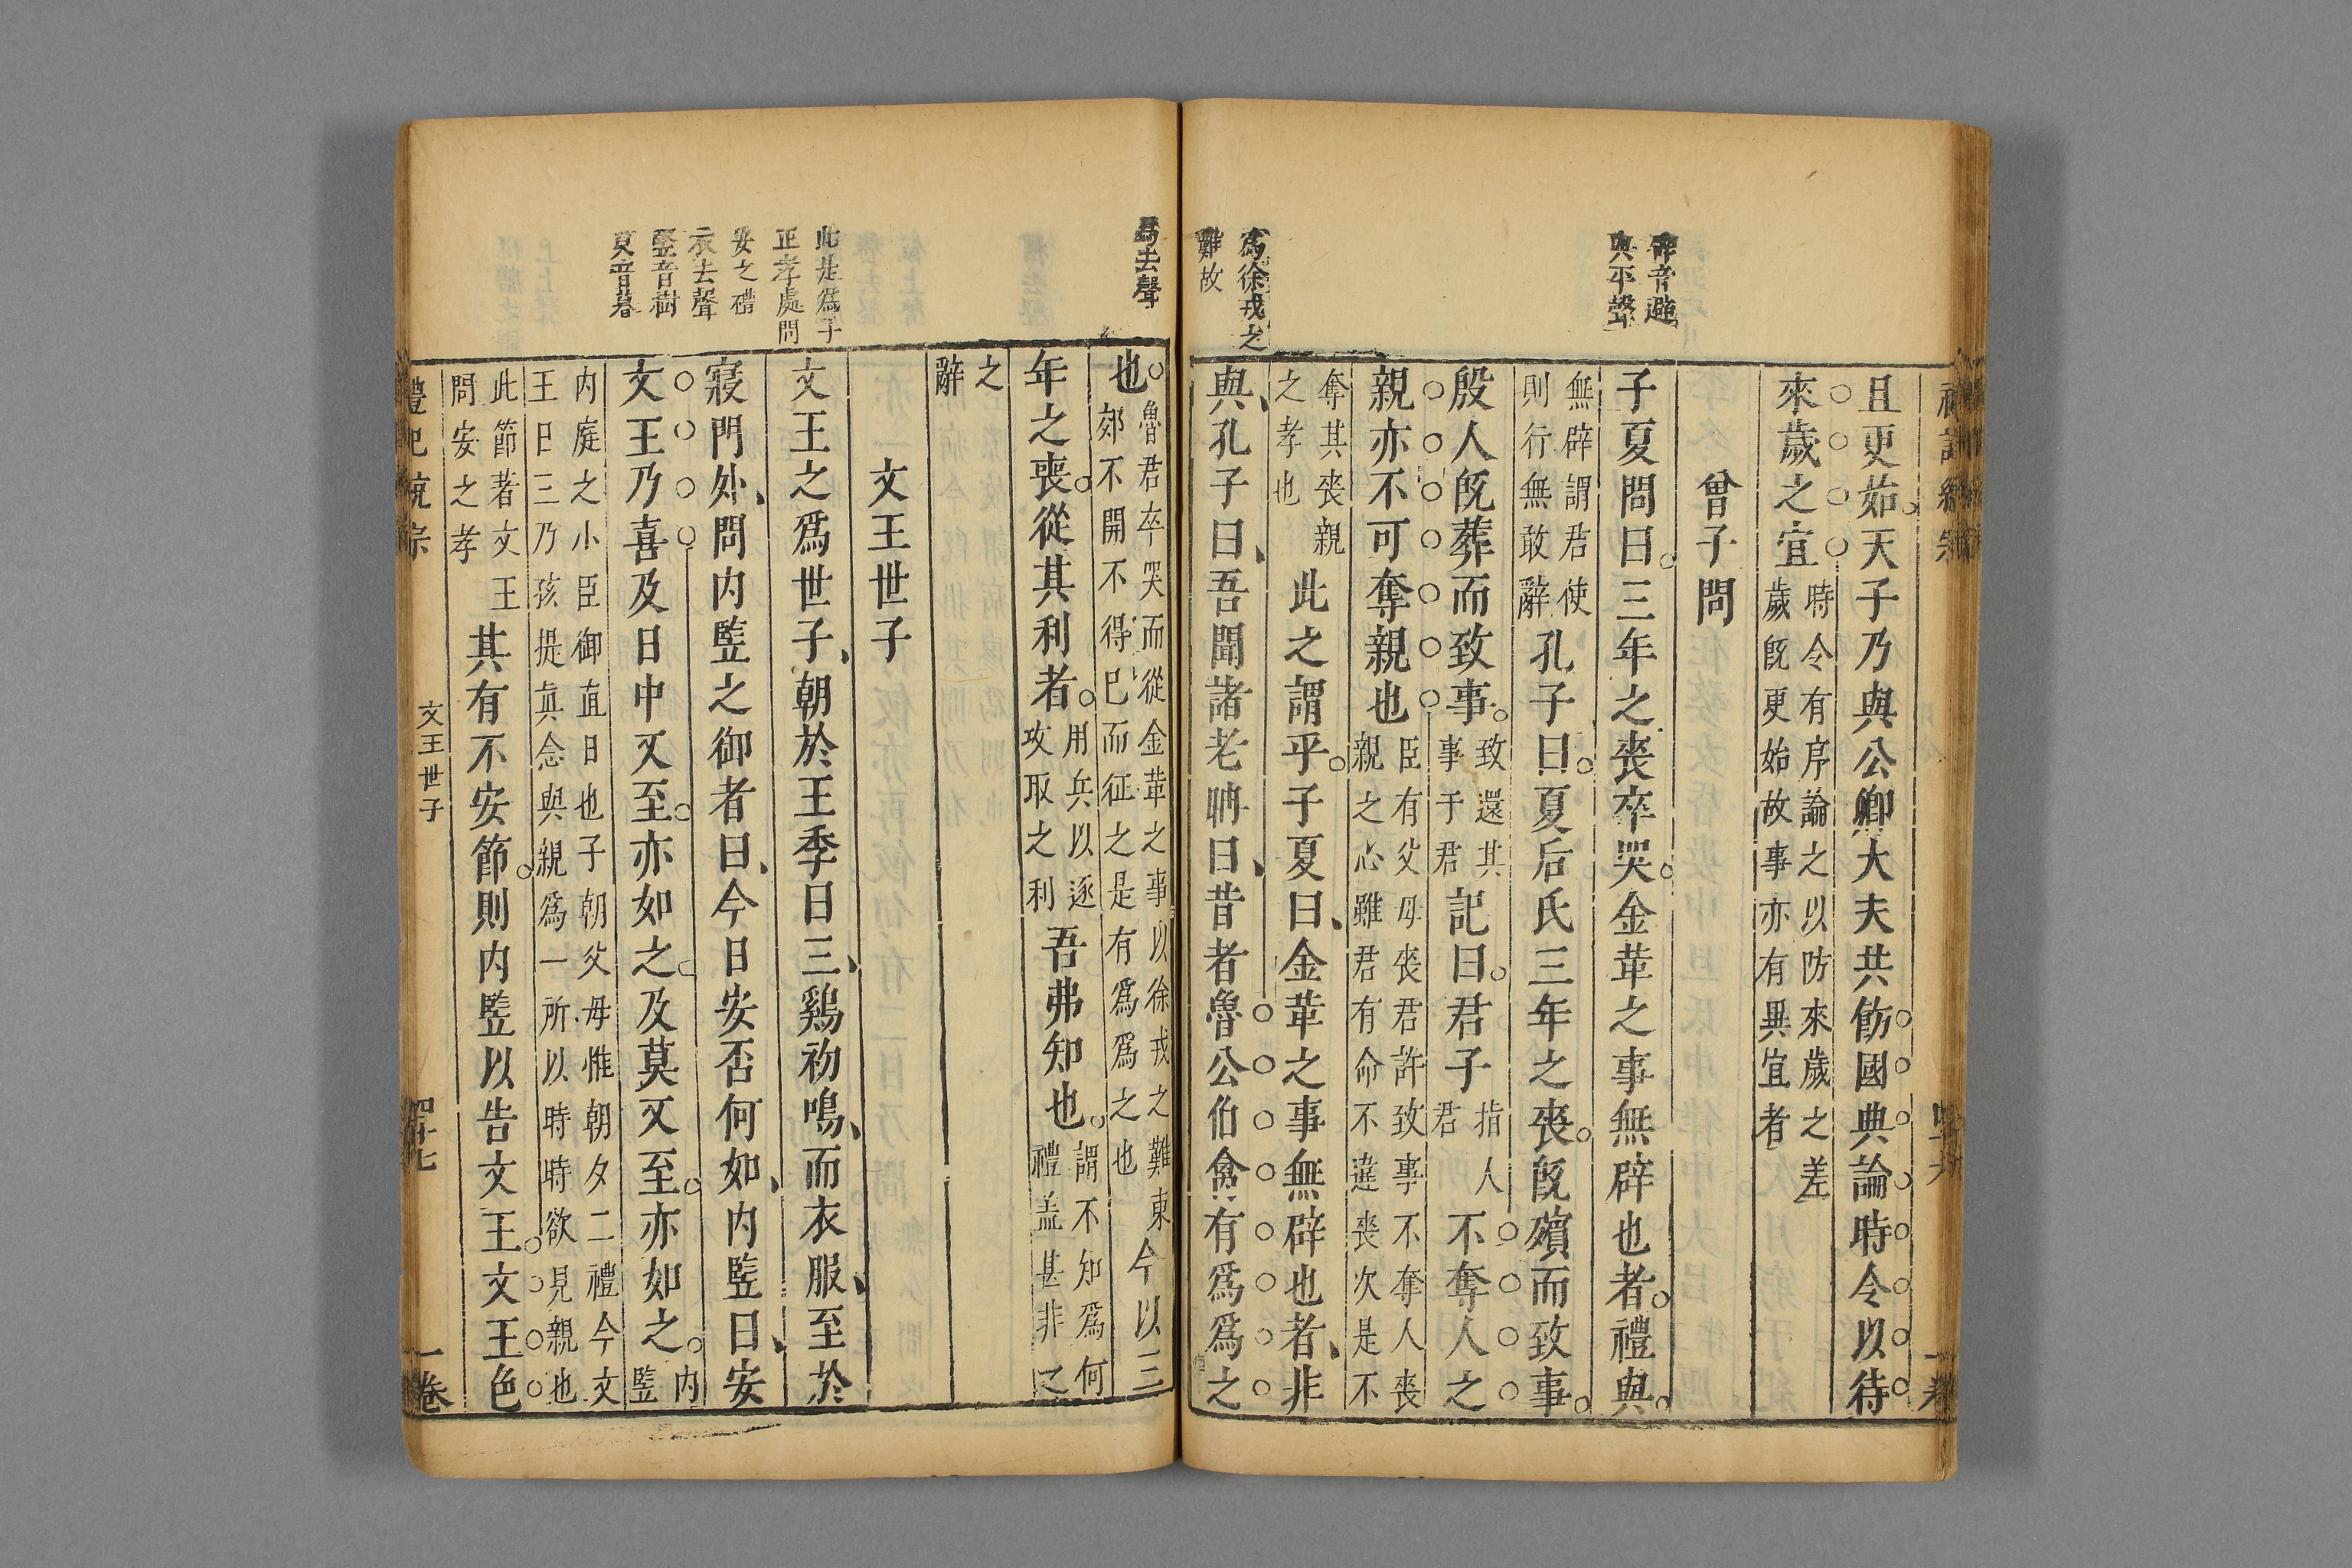 辟音避
與平聲
為徐戎之
難故
且更始天子乃與公卿大夫共飭國典論時令以待
來歲之宜時令有序論之以防來歲之差歲既更始故事亦有異宜者
曾子問
子夏問曰三年之喪卒哭金革之事無辟也者禮與
無辟謂君使則行無敢辭孔子曰夏后氏三年之喪既殯而致事
殷人既葬而致事致還其事于君記曰君子指人君不奪人之
親亦不可奪親也臣有父母喪君許致事不奪人喪親之心雖君有命不違喪次是不
奪其喪親之孝也此之謂乎子夏曰金革之事無辟也者非
與孔子曰吾聞諸老聃曰昔者魯公伯禽有為為之
為去聲
此是為子
正孝處問
安之禮
衣去聲
豎音樹
莫音暮
也魯君卒哭而從金革之事以徐戎之難東郊不開不得已而征之是有為為之也今以三
年之喪從其利者用兵以逐攻取之利吾弗知也謂不知為何禮盖甚非之
之辭
文王世子
文王之為世子朝於王季日三鷄初鳴而衣服至於
寢門外問內豎之御者曰今日安否何如內豎曰安
文王乃喜及日中又至亦如之及莫又至亦如之內豎
內庭之小臣御直日也子朝父母惟朝夕二禮今文王日三乃孩提真念與親為一所以時時欲見親也
此節著文王問安之孝其有不安節則內豎以告文王文王色
文王世子
四十七
一卷